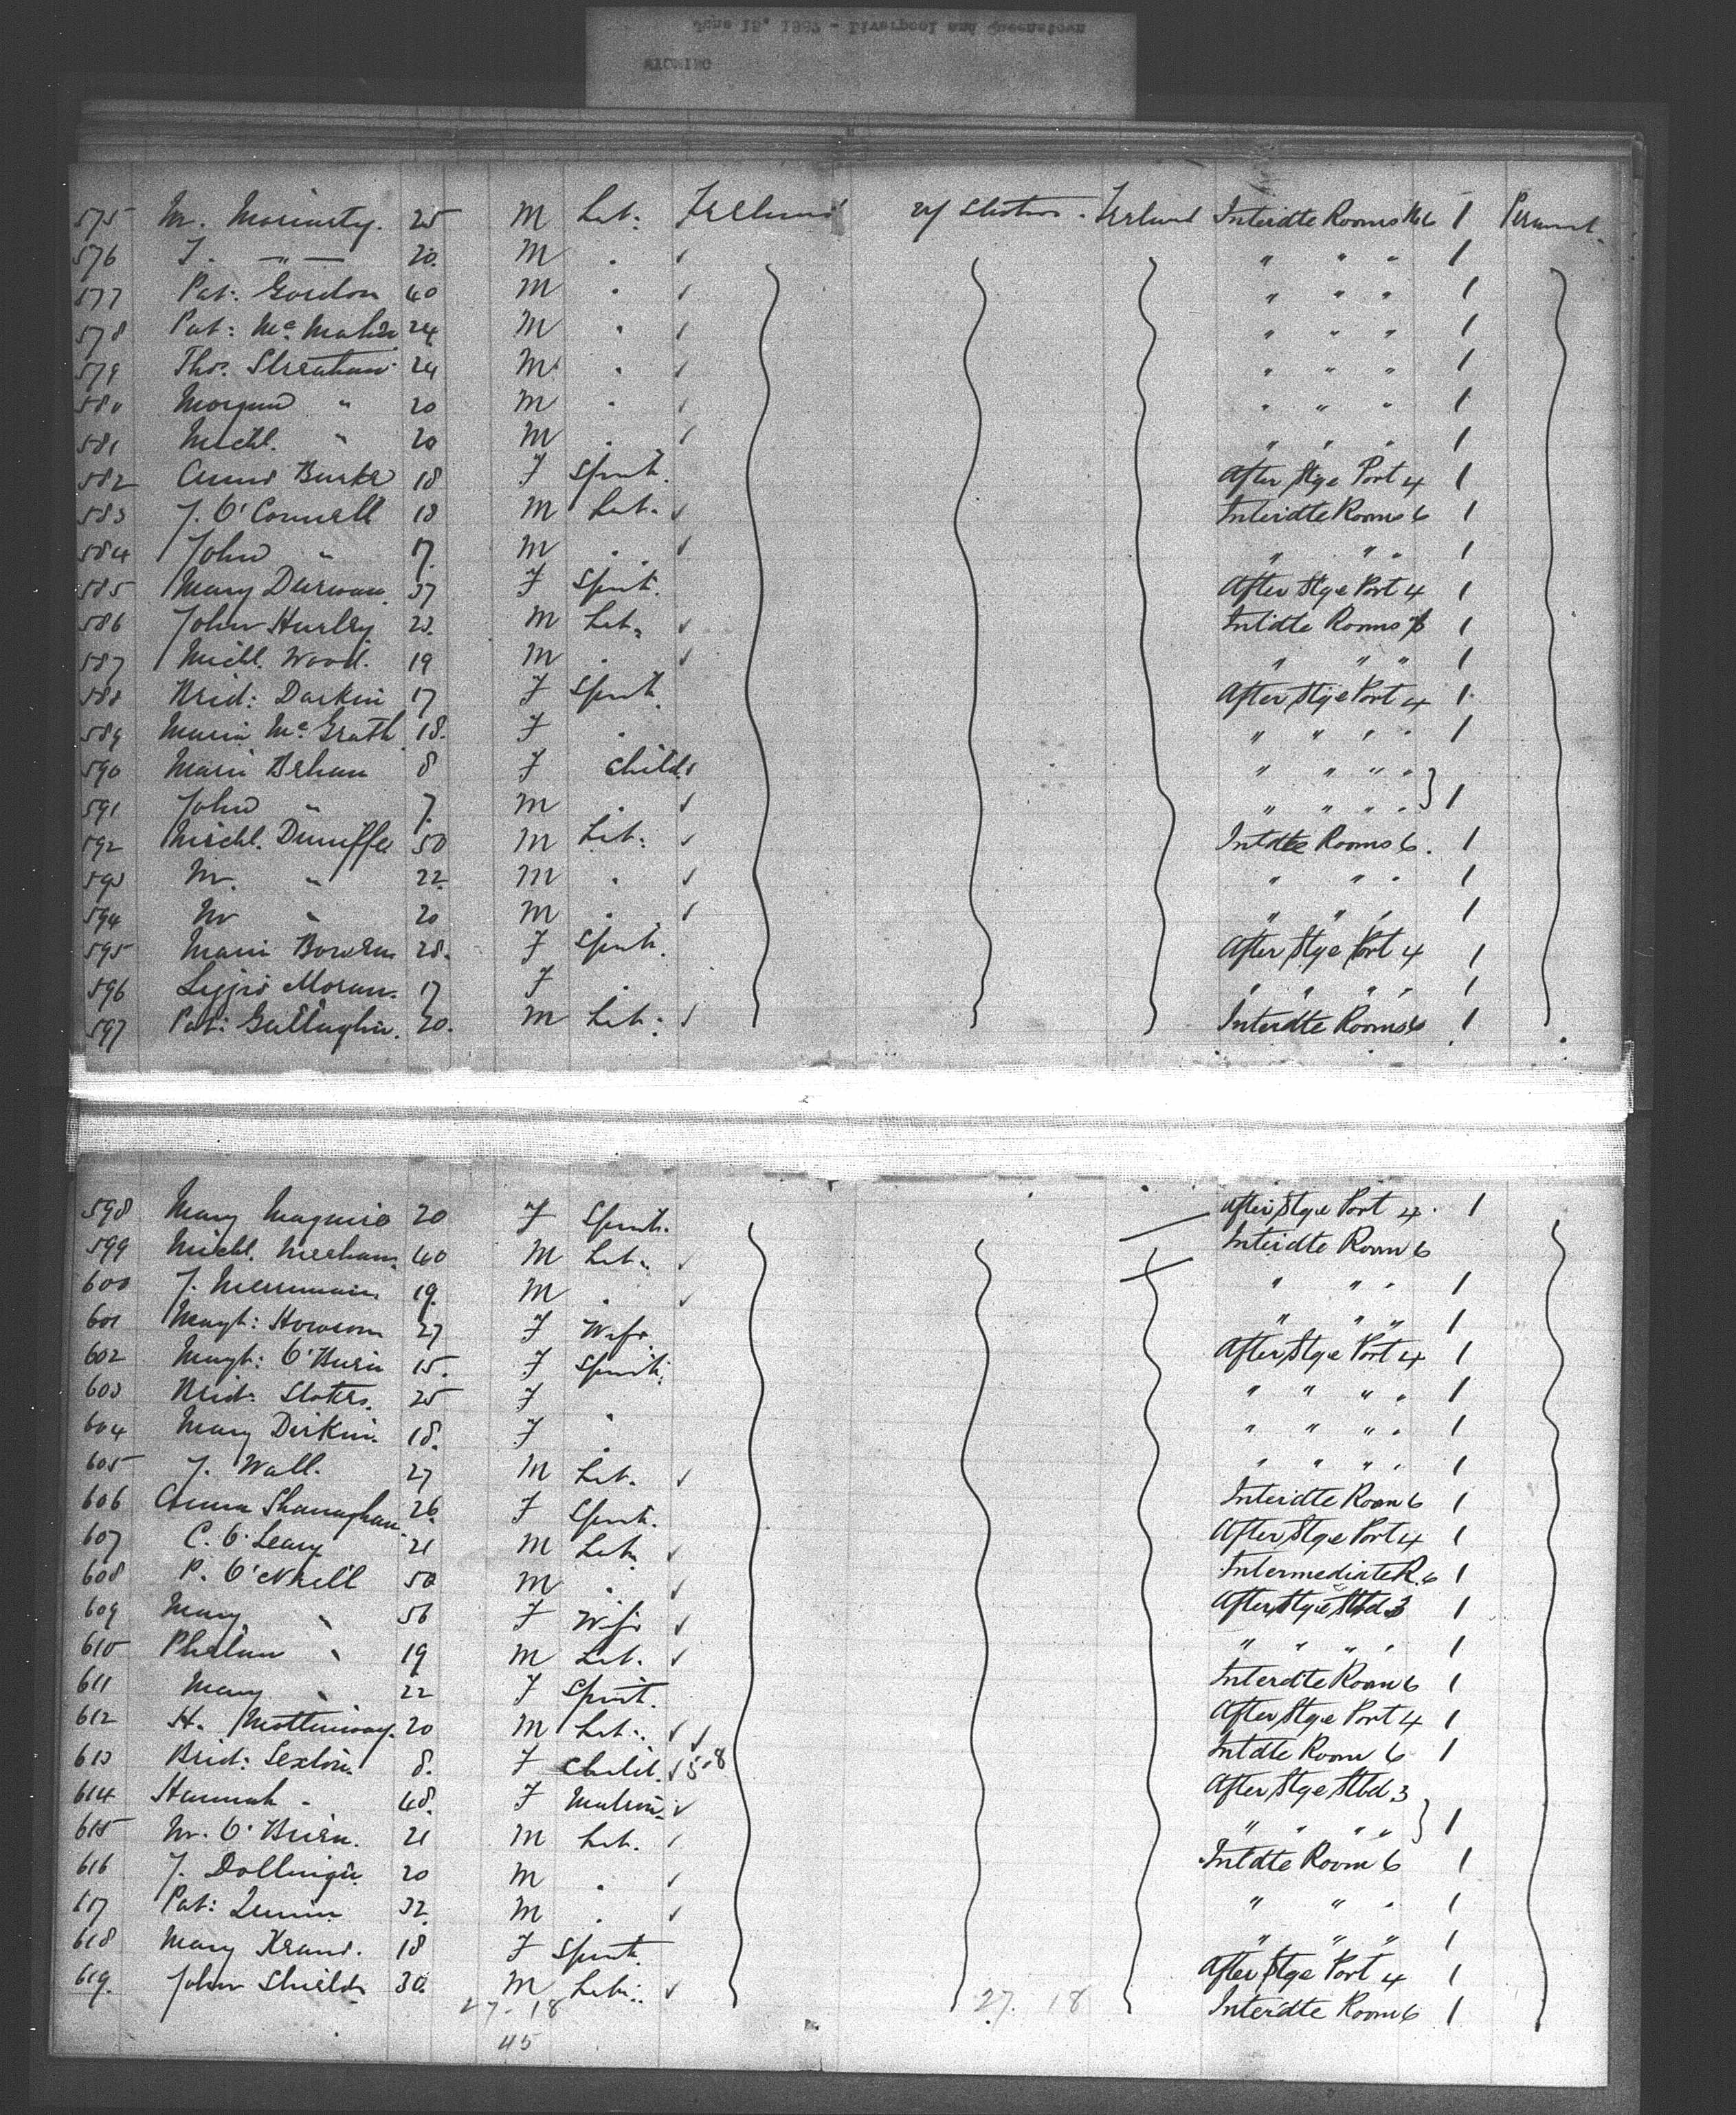 June 15, 1887 - Liverpool and Queenstown
WYOMING
575 M. Moriarty. 25 M Lab: Ireland U/ States. Ireland Interdte Rooms No 6 1 Permnt.
576 J. —"— 20. M . ✓ " " " 1
577 Pat: Gordon 40 M . ✓ " " " 1
578 Pat: McMahon 24 M . ✓ " " " 1
579 Thos. 24 M . ✓ " " " 1
580 Morgan " 20 M . ✓ " " " 1
581 Michl. " 20 M . ✓ " " " 1
582 Annie Burke 18 F Spinst. After Stge Port 4 1
583 J. O'Connell 18 M Lab. ✓ Interdte Rooms 6 1
584 John " 17. M . ✓ " " " 1
585 Mary Durwan 37 F Spinst. After Stge Port 4 1
586 John Hurley 23. M Lab. ✓ Intdte Rooms 6 1
587 Michl. Wood. 19 M . ✓ " " " 1
588 Brid: Darkin 17 F Spinst. After Stge Port 4 1
589 Maria McGrath 18. F . " " " " 1
590 Maria Behan 8 F Child ✓ " " " "
591 John " 7. M . ✓ " " " " } 1
592 Michl. 50 M Lab: ✓ Intdte Rooms 6. 1
593 M. " 22 M . ✓ " " " 1
594 M " 20 M . ✓ " " " 1
595 Maria Bowen 28. F Spinst. After Stge Port 4 1
596 Lizzie Moran. 17 F . " " " " 1
597 Pat: Gallagher. 20. M Lab: ✓ Interdte Rooms 6 1
598 Mary Maguire 20 F Spinst. After Stge Port 4. 1
599 Michl. Meehan. 40 M Lab. ✓ Interdte Room 6
600 J. Merriman. 19. M . ✓ " " " 1
601 Margt: Howson 27 F Wife. " " " 1
602 Margt: O'Brien 15. F Spinst. After Stge Port 4 1
603 Brid: Slaters. 25 F " " " " 1
604 Mary Dirkin. 18. F . " " " " 1
605 J. Wall. 27 M Lab. ✓ " " " " 1
606 Anna Shanaghan. 26. F Spinst. Interdte Room 6 1
607 C. O'Leary 21 M Lab. ✓ After Stge Port 4 1
608 P. O'Neill 50 M . ✓ Intermediate R. 6 1
609 Mary " 56 F Wife ✓ After Stge Stbd 3 1
610 Phelan " 19 M Lab. ✓ " " " " 1
611 Mary " 22 F Spinst. Interdte Room 6 1
612 H. 20 M Lab: ✓ ✓ After Stge Port 4 1
613 Brid: Sexton. 8. F Child. ✓ 5.8 Intdte Room 6 1
614 Hannah " 48. F Matron. ✓ After Stge Stbd 3
615 M. O'Brien. 21 M Lab. ✓ " " " " } 1
616 J. 20 M . ✓ Intdte Room 6 1
617 Pat: 32. M . ✓ " " " 1
618 Mary Keane. 18 F Spinst. " " " 1
After Stge Port 4 1
619. John Shields 30. M Lab:. ✓ Interdte Room 6 1
27. 18 27. 18
45